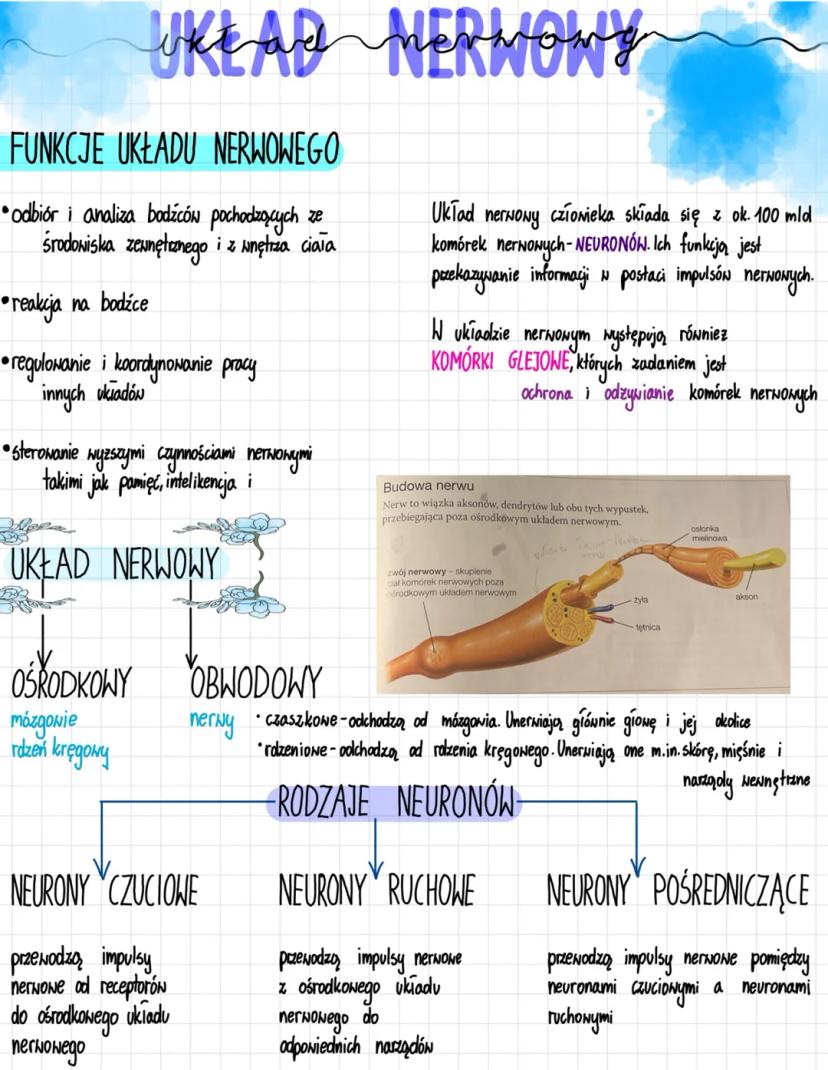 UKŁAD NERWOWY
układ nerwowy
FUNKCJE UKŁADU NERWOWEGO
•odbiór i analiza bodźców pochodzących ze
środowiska zewnętrznego i z wnętrza ciała
•reakcja na bodźce
•regulowanie i koordynowanie pracy
innych układów
•sterowanie wyższymi czynnościami nerwowymi
takimi jak pamięć, intelikencja i
Układ nerwowy człowieka składa się z ok. 100 mld
komórek nerwowych-NEURONÓW. Ich funkcją jest
przekazywanie informacji w postaci impulsów nerwowych.
W układzie nerwowym występują również
KOMÓRKI GLEJOWE, których zadaniem jest
ochrona i odżywianie komórek nerwowych
Budowa nerwu
Nerw to wiązka aksonów, dendrytów lub obu tych wypustek,
przebiegająca poza ośrodkowym układem nerwowym.
osłonka
mielinowa
zwój nerwowy – skupienie
ciał komórek nerwowych poza
ośrodkowym układem nerwowym
akson
żyła
tętnica
UKŁAD NERWOWY
OŚRODKOWY
mózgowie
rdzeń kręgowy
OBWODOWY
nerwy
• czaszkowe-odchodzą od mózgowia. Unerwiają głównie głowę i jej okolice
•rdzeniowe-odchodzą od rdzenia kręgowego. Unerwiają one m.in. skórę, mięśnie i
narządy wewnętrzne
RODZAJE NEURONÓW
NEURONY CZUCIOWE
przewodzą impulsy
nerwowe od receptorów
do ośrodkowego układu
nerwowego
NEURONY RUCHOWE
przewodzą impulsy nerwowe
z ośrodkowego układu
nerwowego do
odpowiednich narządów
NEURONY POŚREDNICZĄCE
przewodzą impulsy nerwowe pomiędzy
neuronami czuciowymi a neuronami
ruchowymi